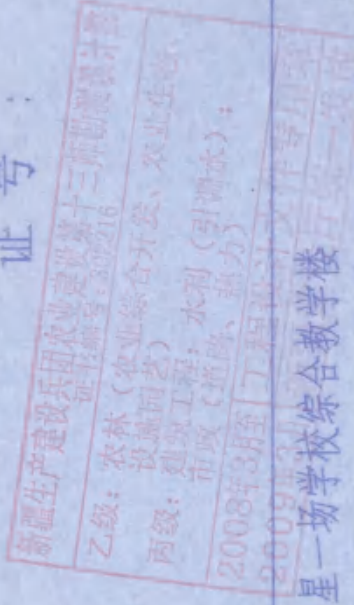 证号:
新疆生产建设兵团农业建设第十三师勘测设计院
证书编号:309216
乙级:农林(农业综合开发、农业生态、
设施园艺)
丙级:建筑工程;水利(引调水);
市政(道路、热力)
2008年3月至
工程设计文件专用章
星一场学校综合教学楼